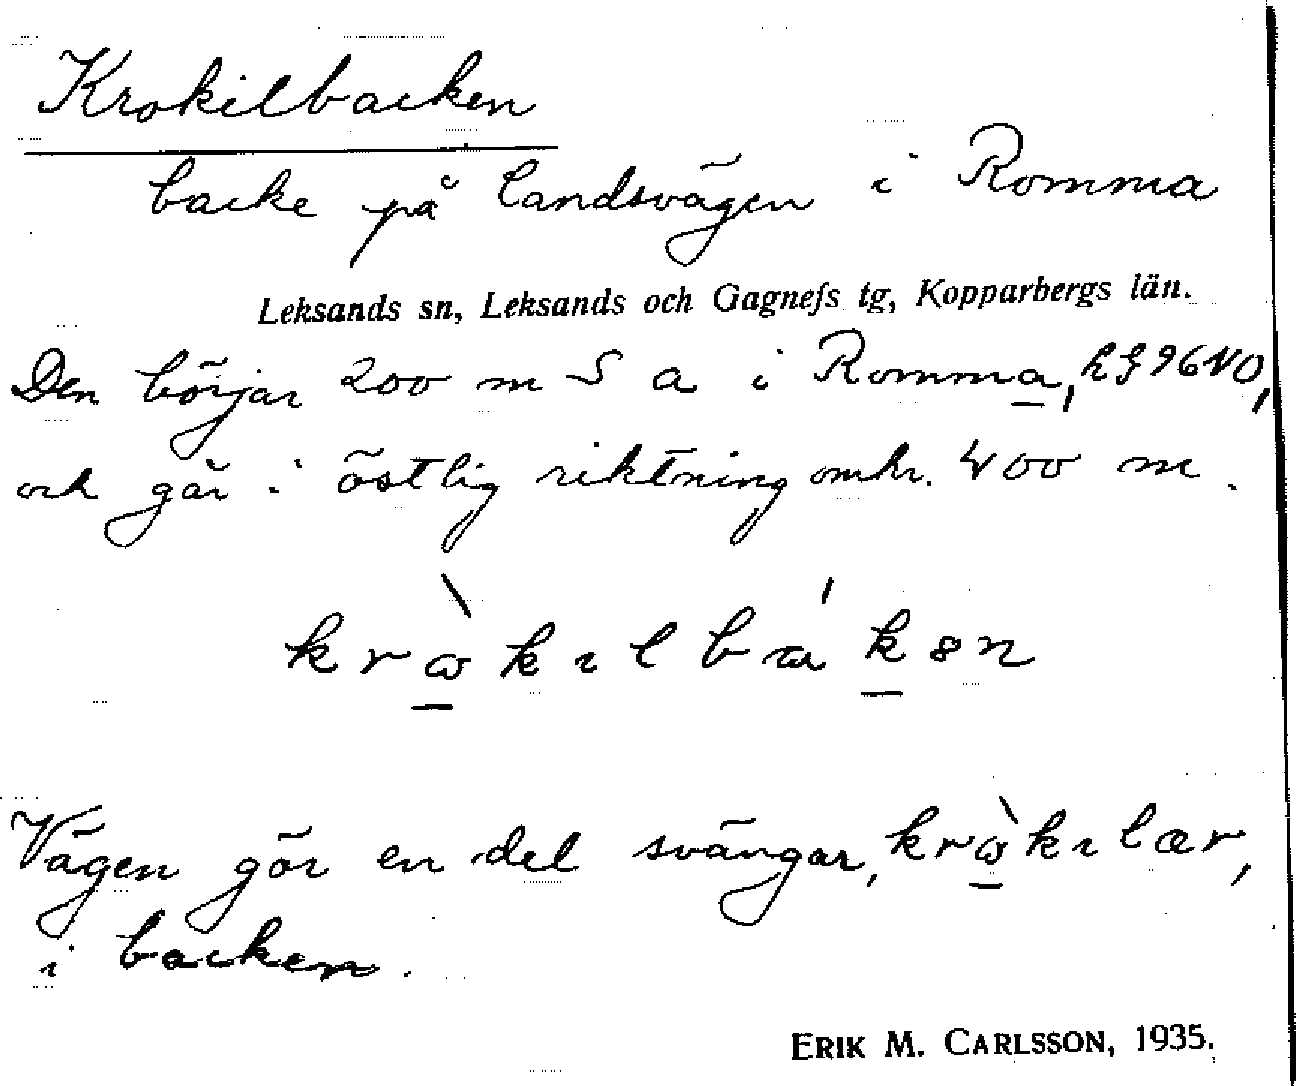 Krokilbacken
backe på landsvägen i Romma
Leksands sn, Leksands och Gagnefs tg, Kopparbergs län.
Den börjar 200 m S a i Romma, 96 NO,
och går i östlig riktning omkr. 400 m.
Vägen gör en del svängar,
i backen.
ERIK M. CARLSSON, 1935.